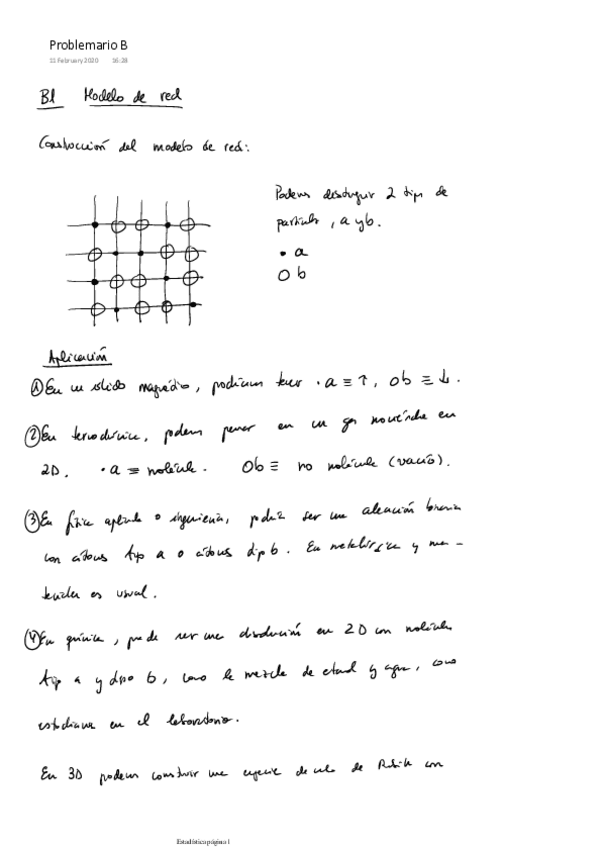 Problemario B
11 February 2020 16:28
B1 Modelo de red
Construcción del modelo de red:
Podemos distinguir 2 tipos de
partículas, a y b.
• a
O b
Aplicación
① En un sólido magnético, podríamos tener • a ≡ ↑, O b ≡ ↓.
② En termodinámica, podemos pensar en un gas en
2D. • a ≡ molécula. O b ≡ no molécula (vacío).
③ En física aplicada o ingeniería, podría ser una aleación binaria
con átomos tipo a o átomos tipo b. En metalúrgica y ma-
teriales es usual.
④ En química, puede ser una disolución en 2D con moléculas
tipo a y tipo b, como la mezcla de etanol y agua, como
estudiamos en el laboratorio.
En 3D podemos construir una especie de cubo de Rubik con
Estadística página 1